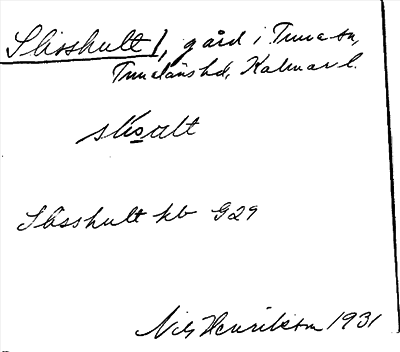 Slisshult 1, gård i Tuna sn,
Tunaläns hd, Kalmar l.
Slisshult kb G29
Nils Henrikson 1931